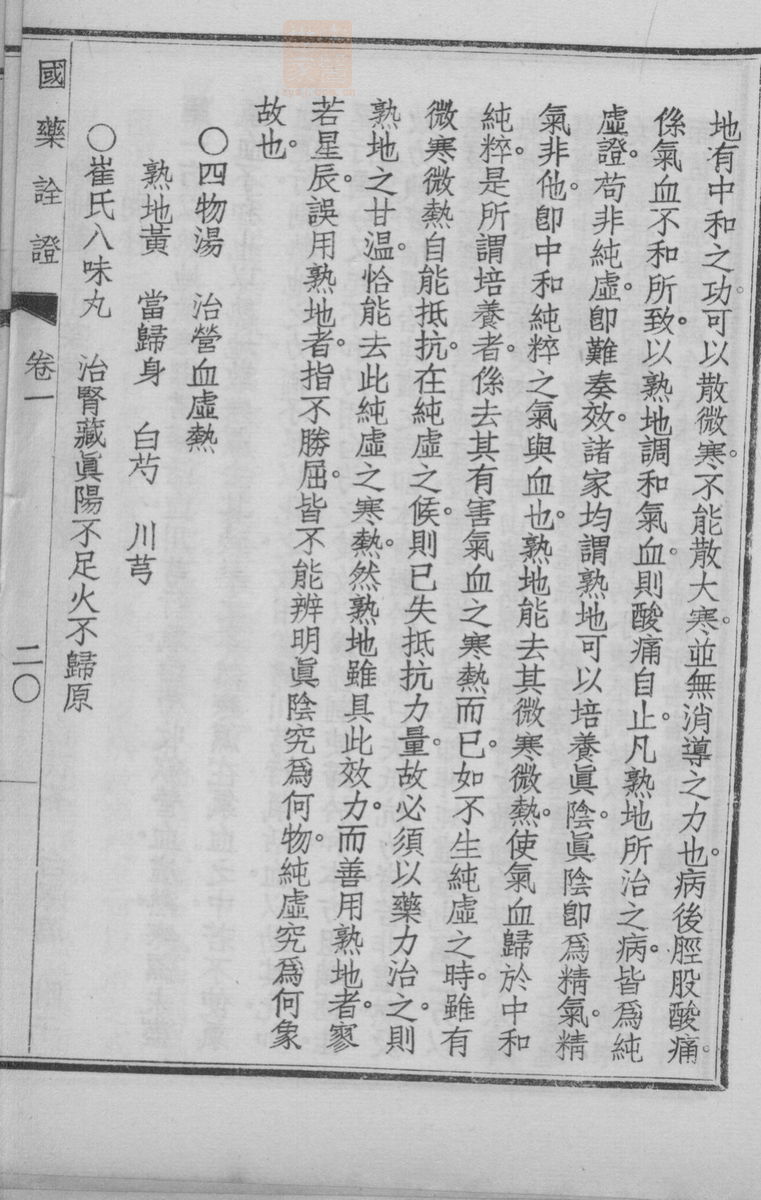 地有中和之功。可以散微寒。不能散大寒。並無消導之力也。病後脛股酸痛。
係氣血不和所致。以熟地調和氣血。則酸痛自止。凡熟地所治之病。皆爲純
虛證。苟非純虛。卽難奏效。諸家均謂熟地可以培養眞陰。眞陰卽爲精氣。精
氣非他。卽中和純粹之氣與血也。熟地能去其微寒微熱。使氣血歸於中和
純粹。是所謂培養者。係去其有害氣血之寒熱而已。如不生純虛之時。雖有
微寒微熱。自能抵抗。在純虛之候。則已失抵抗力量。故必須以藥力治之。則
熟地之甘温。恰能去此純虛之寒熱。然熟地雖具此效力。而善用熟地者。寥
若星辰。誤用熟地者。指不勝屈。皆不能辨明眞陰究爲何物。純虛究爲何象
故也。
○四物湯　治營血虛熱
熟地黃　當歸身　白芍　川芎
○崔氏八味丸　治腎藏眞陽不足火不歸原
國藥詮證　卷一　二〇